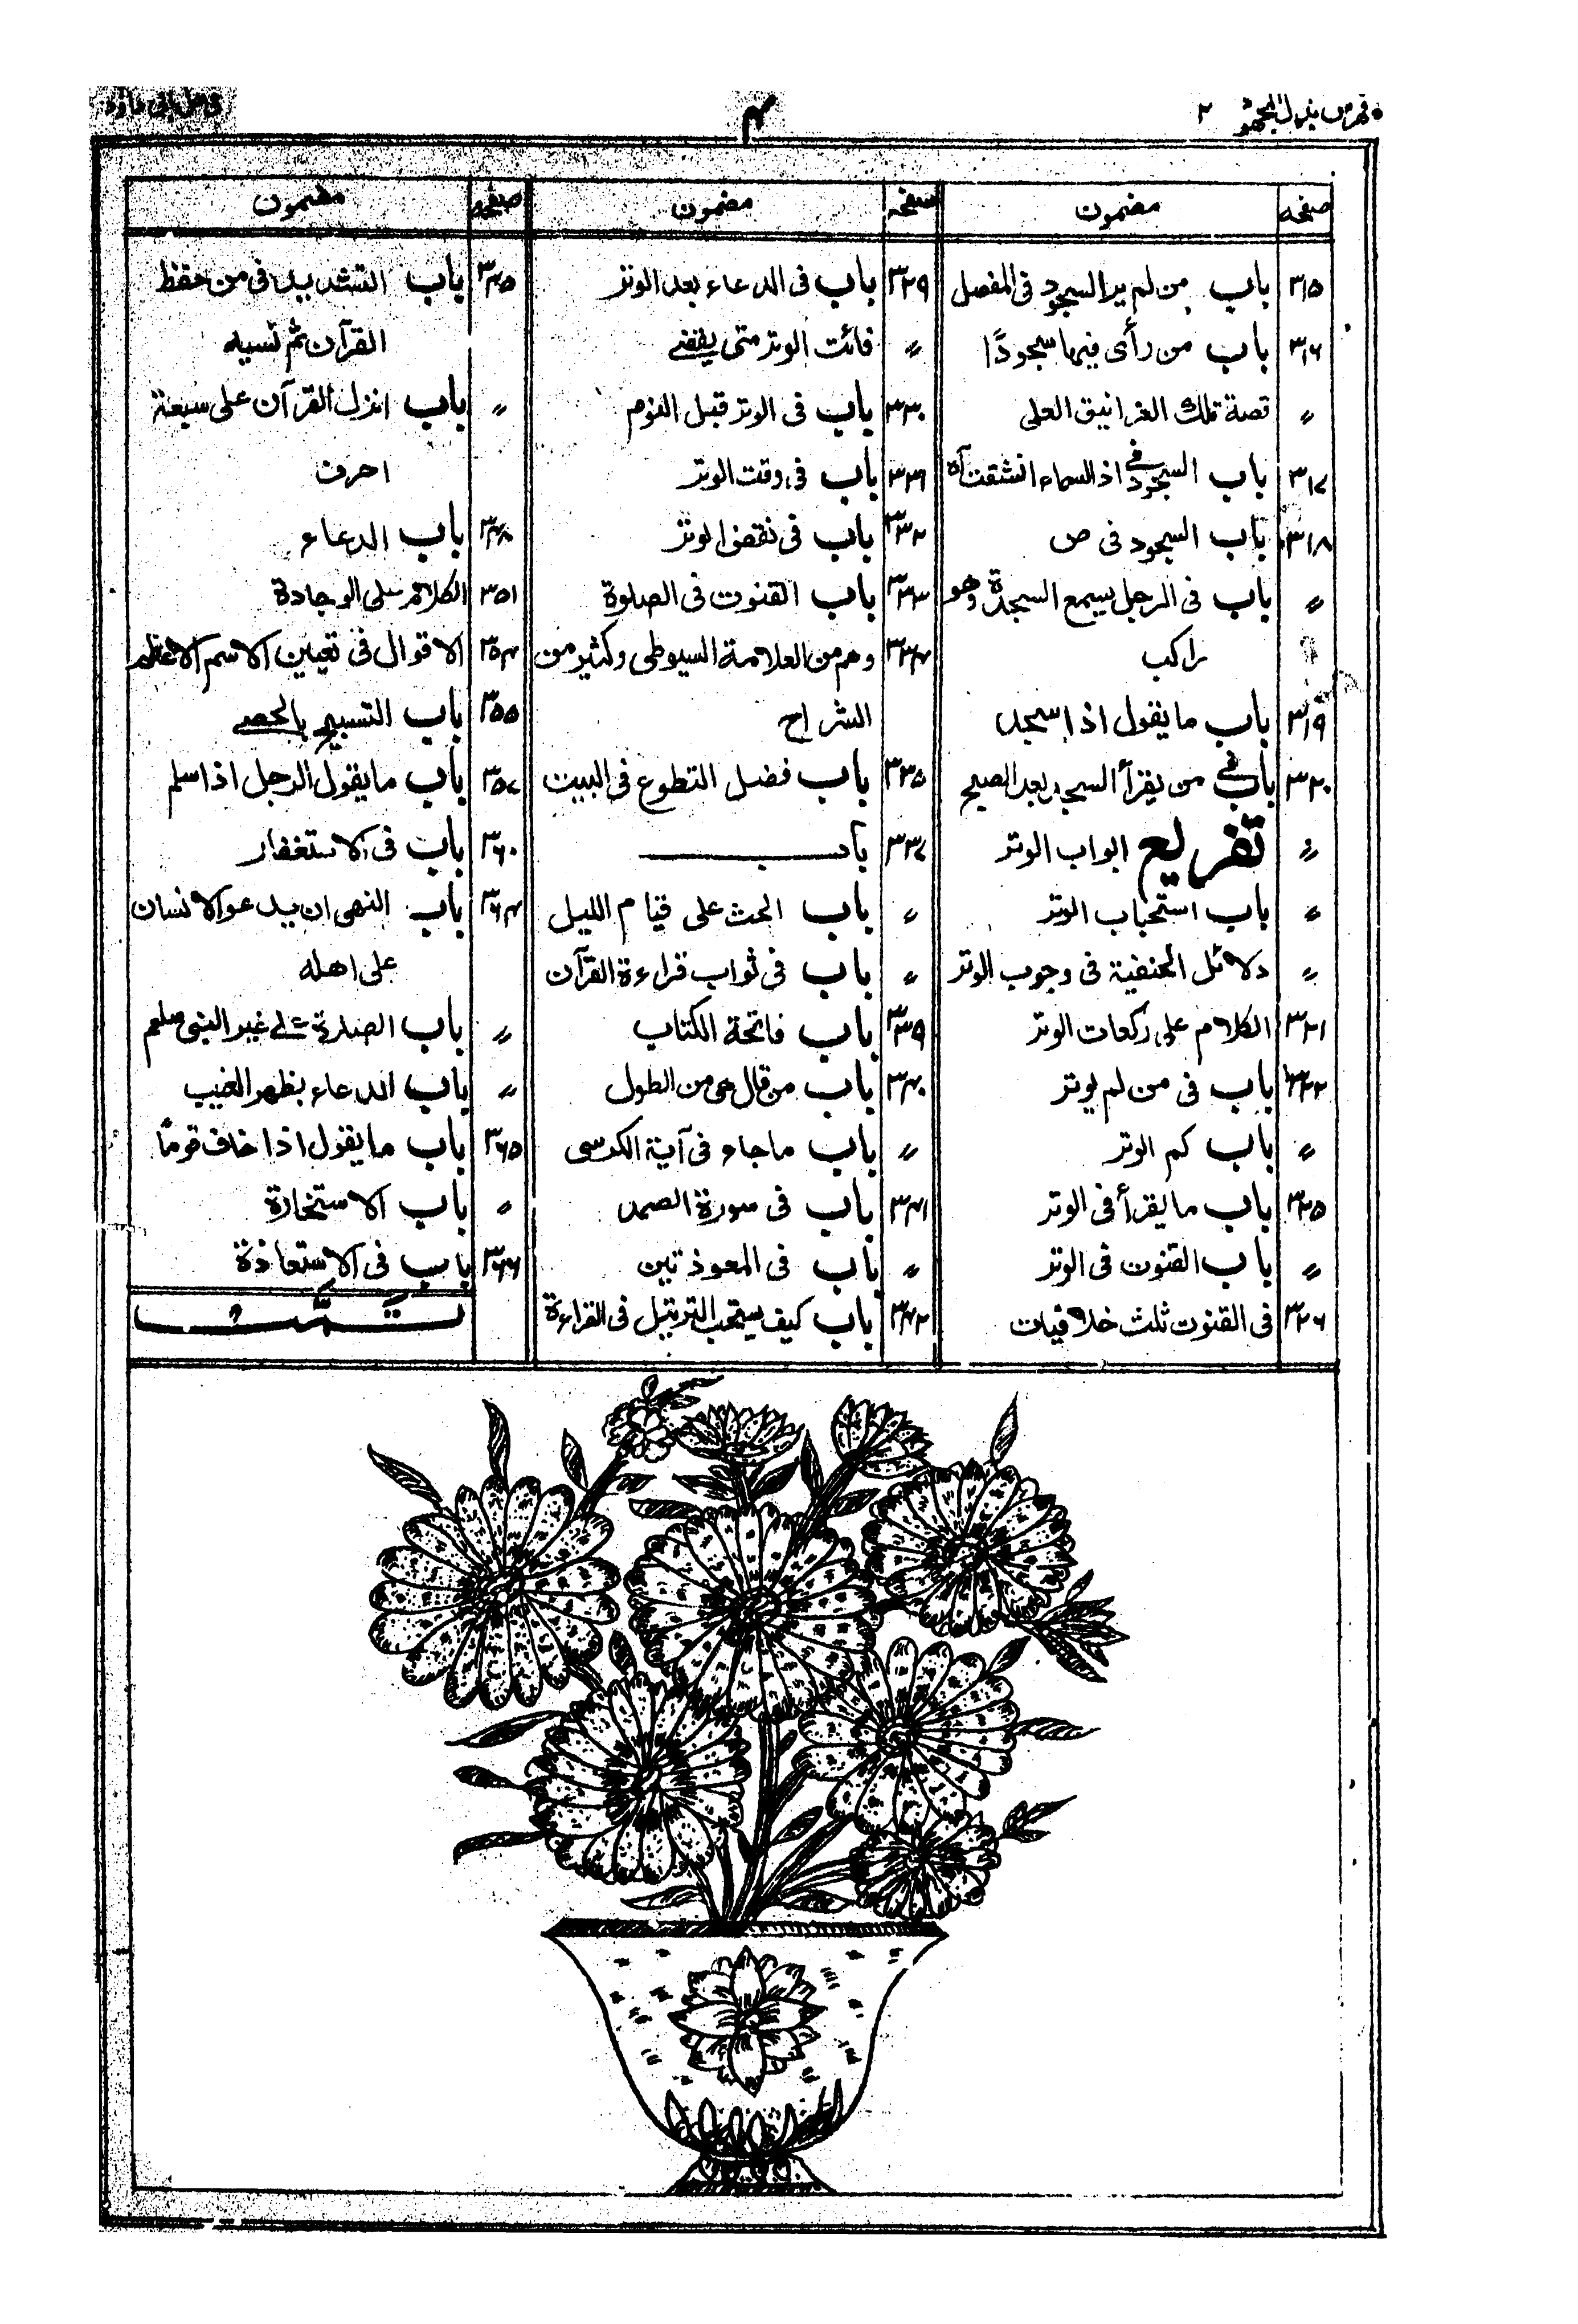 فهرس بذل المجهود ٢
۴
فی حل ابی داؤد
صفحہ مضمون
۳۱۵ باب من لم یر السجود فی المفصل
۳۱۶ باب من رأی فیھا سجودًا
〃 قصة تلك الغرانیق العلی
۳۱۷ باب السجود فی اذا السماء انشقت آہ
۳۱۸ باب السجود فی ص
〃 باب فی الرجل یسمع السجدة وھو
راکب
۳۱۹ باب ما یقول اذا سجد
۳۲۰ باب فی من یقرأ السجدة بعد الصبح
〃 تفریع ابواب الوتر
〃 باب استحباب الوتر
〃 دلائل الحنفیة فی وجوب الوتر
۳۲۱ الکلام علی رکعات الوتر
۳۲۲ باب فی من لم یوتر
〃 باب کم الوتر
۳۲۵ باب ما یقرأ فی الوتر
〃 باب القنوت فی الوتر
۳۲۶ فی القنوت ثلث خلافیات
صفحہ مضمون
۳۲۹ باب فی الدعاء بعد الوتر
〃 فائت الوتر متی یقضے
۳۳۰ باب فی الوتر قبل النوم
۳۳۱ باب فی وقت الوتر
۳۳۲ باب فی نقض الوتر
۳۳۳ باب القنوت فی الصلوة
۳۳۴ وھم من العلامة السیوطی وکثیر من
الشراح
۳۳۵ باب فضل التطوع فی البیت
۳۳۷ باب
〃 باب الحث علی قیام اللیل
〃 باب فی ثواب قراءة القرآن
۳۳۹ باب فاتحة الکتاب
۳۴۰ باب من قال ھی من الطول
〃 باب ماجاء فی آیة الکرسی
۳۴۱ باب فی سورة الصمد
〃 باب فی المعوذتین
۳۴۲ باب کیف یستحب الترتیل فی القراءة
صفحہ مضمون
۳۴۵ باب التشدید فی من حفظ
القرآن ثم نسیه
〃 باب انزل القرآن علی سبعة
احرف
۳۴۸ باب الدعاء
۳۵۱ الکلام علی الوجادة
۳۵۴ الاقوال فی تعیین الاسم الاعظم
۳۵۵ باب التسبیح بالحصے
۳۵۷ باب ما یقول الرجل اذا سلم
۳۶۰ باب فی الاستغفار
۳۶۴ باب النھی ان یدعو الانسان
علی اھله
〃 باب الصلوة علی غیر النبی صلعم
〃 باب الدعاء بظھر الغیب
۳۶۵ باب ما یقول اذا خاف قومًا
〃 باب الاستخارة
۳۶۶ باب فی الاستعاذة
تمّت